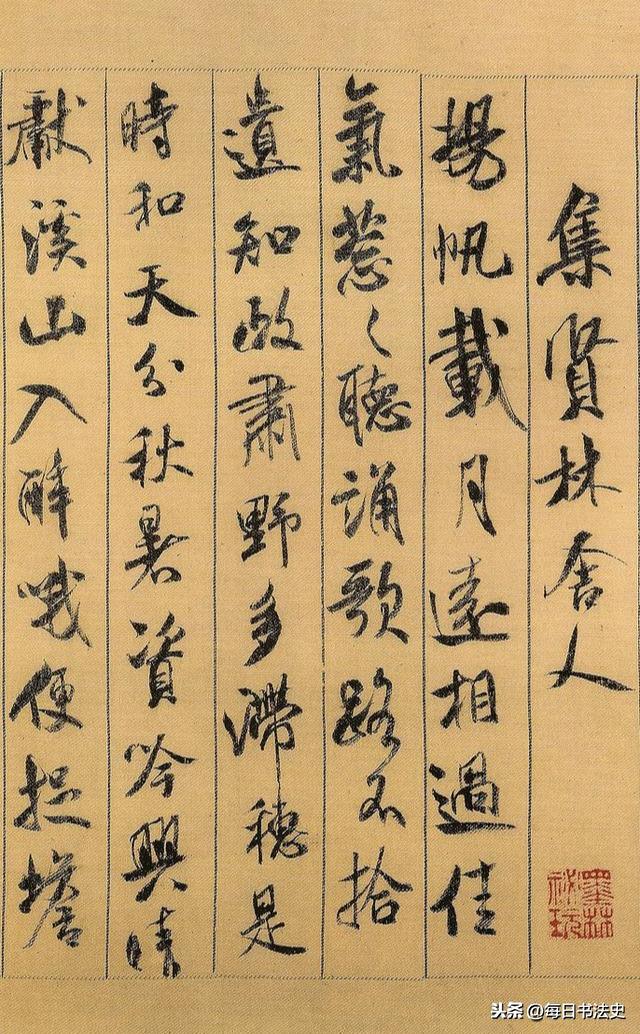 集賢林舍人
揚帆載月遠相過佳
氣葱々聽誦歌路不拾
遺知政肅野多滯穗是
時和天分秋暑資吟興晴
獻溪山入醉哦便捉蟾
墨林秘玩
头条 @每日书法史